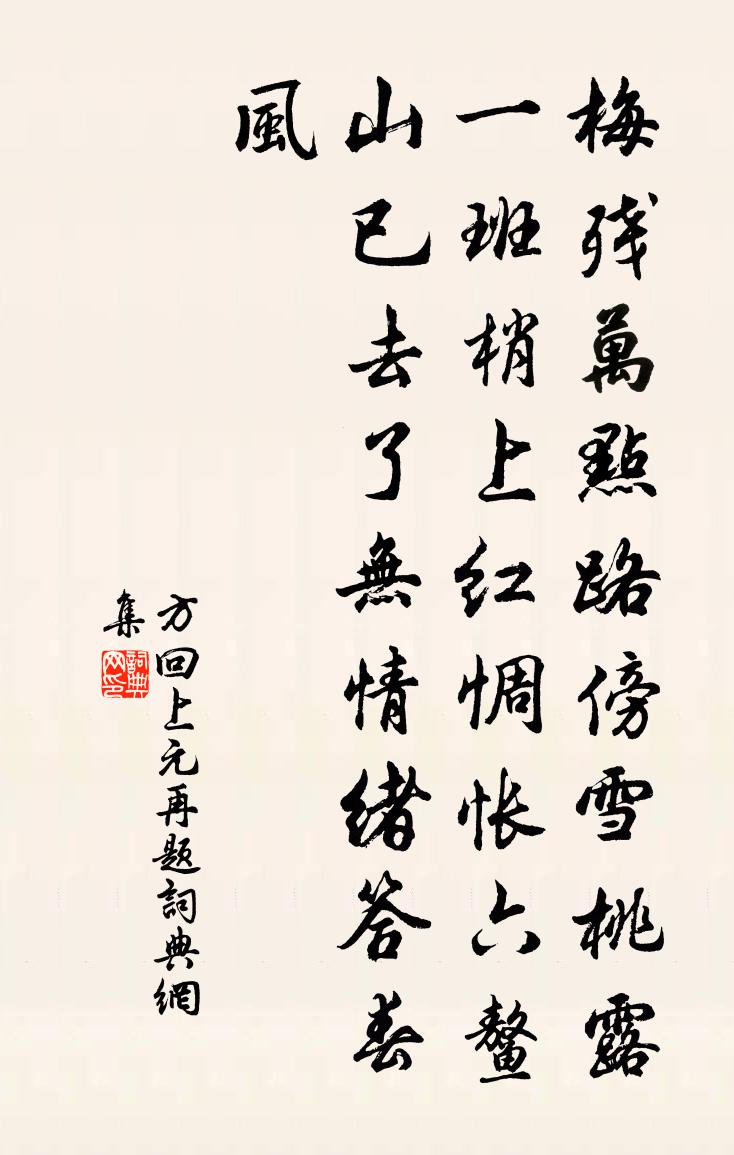 梅残萬點路傍雪桃露
一班梢上红惆怅六鳌
山已去了無情緒答春
風
方回上元再题詞典網
集
詞典
网印